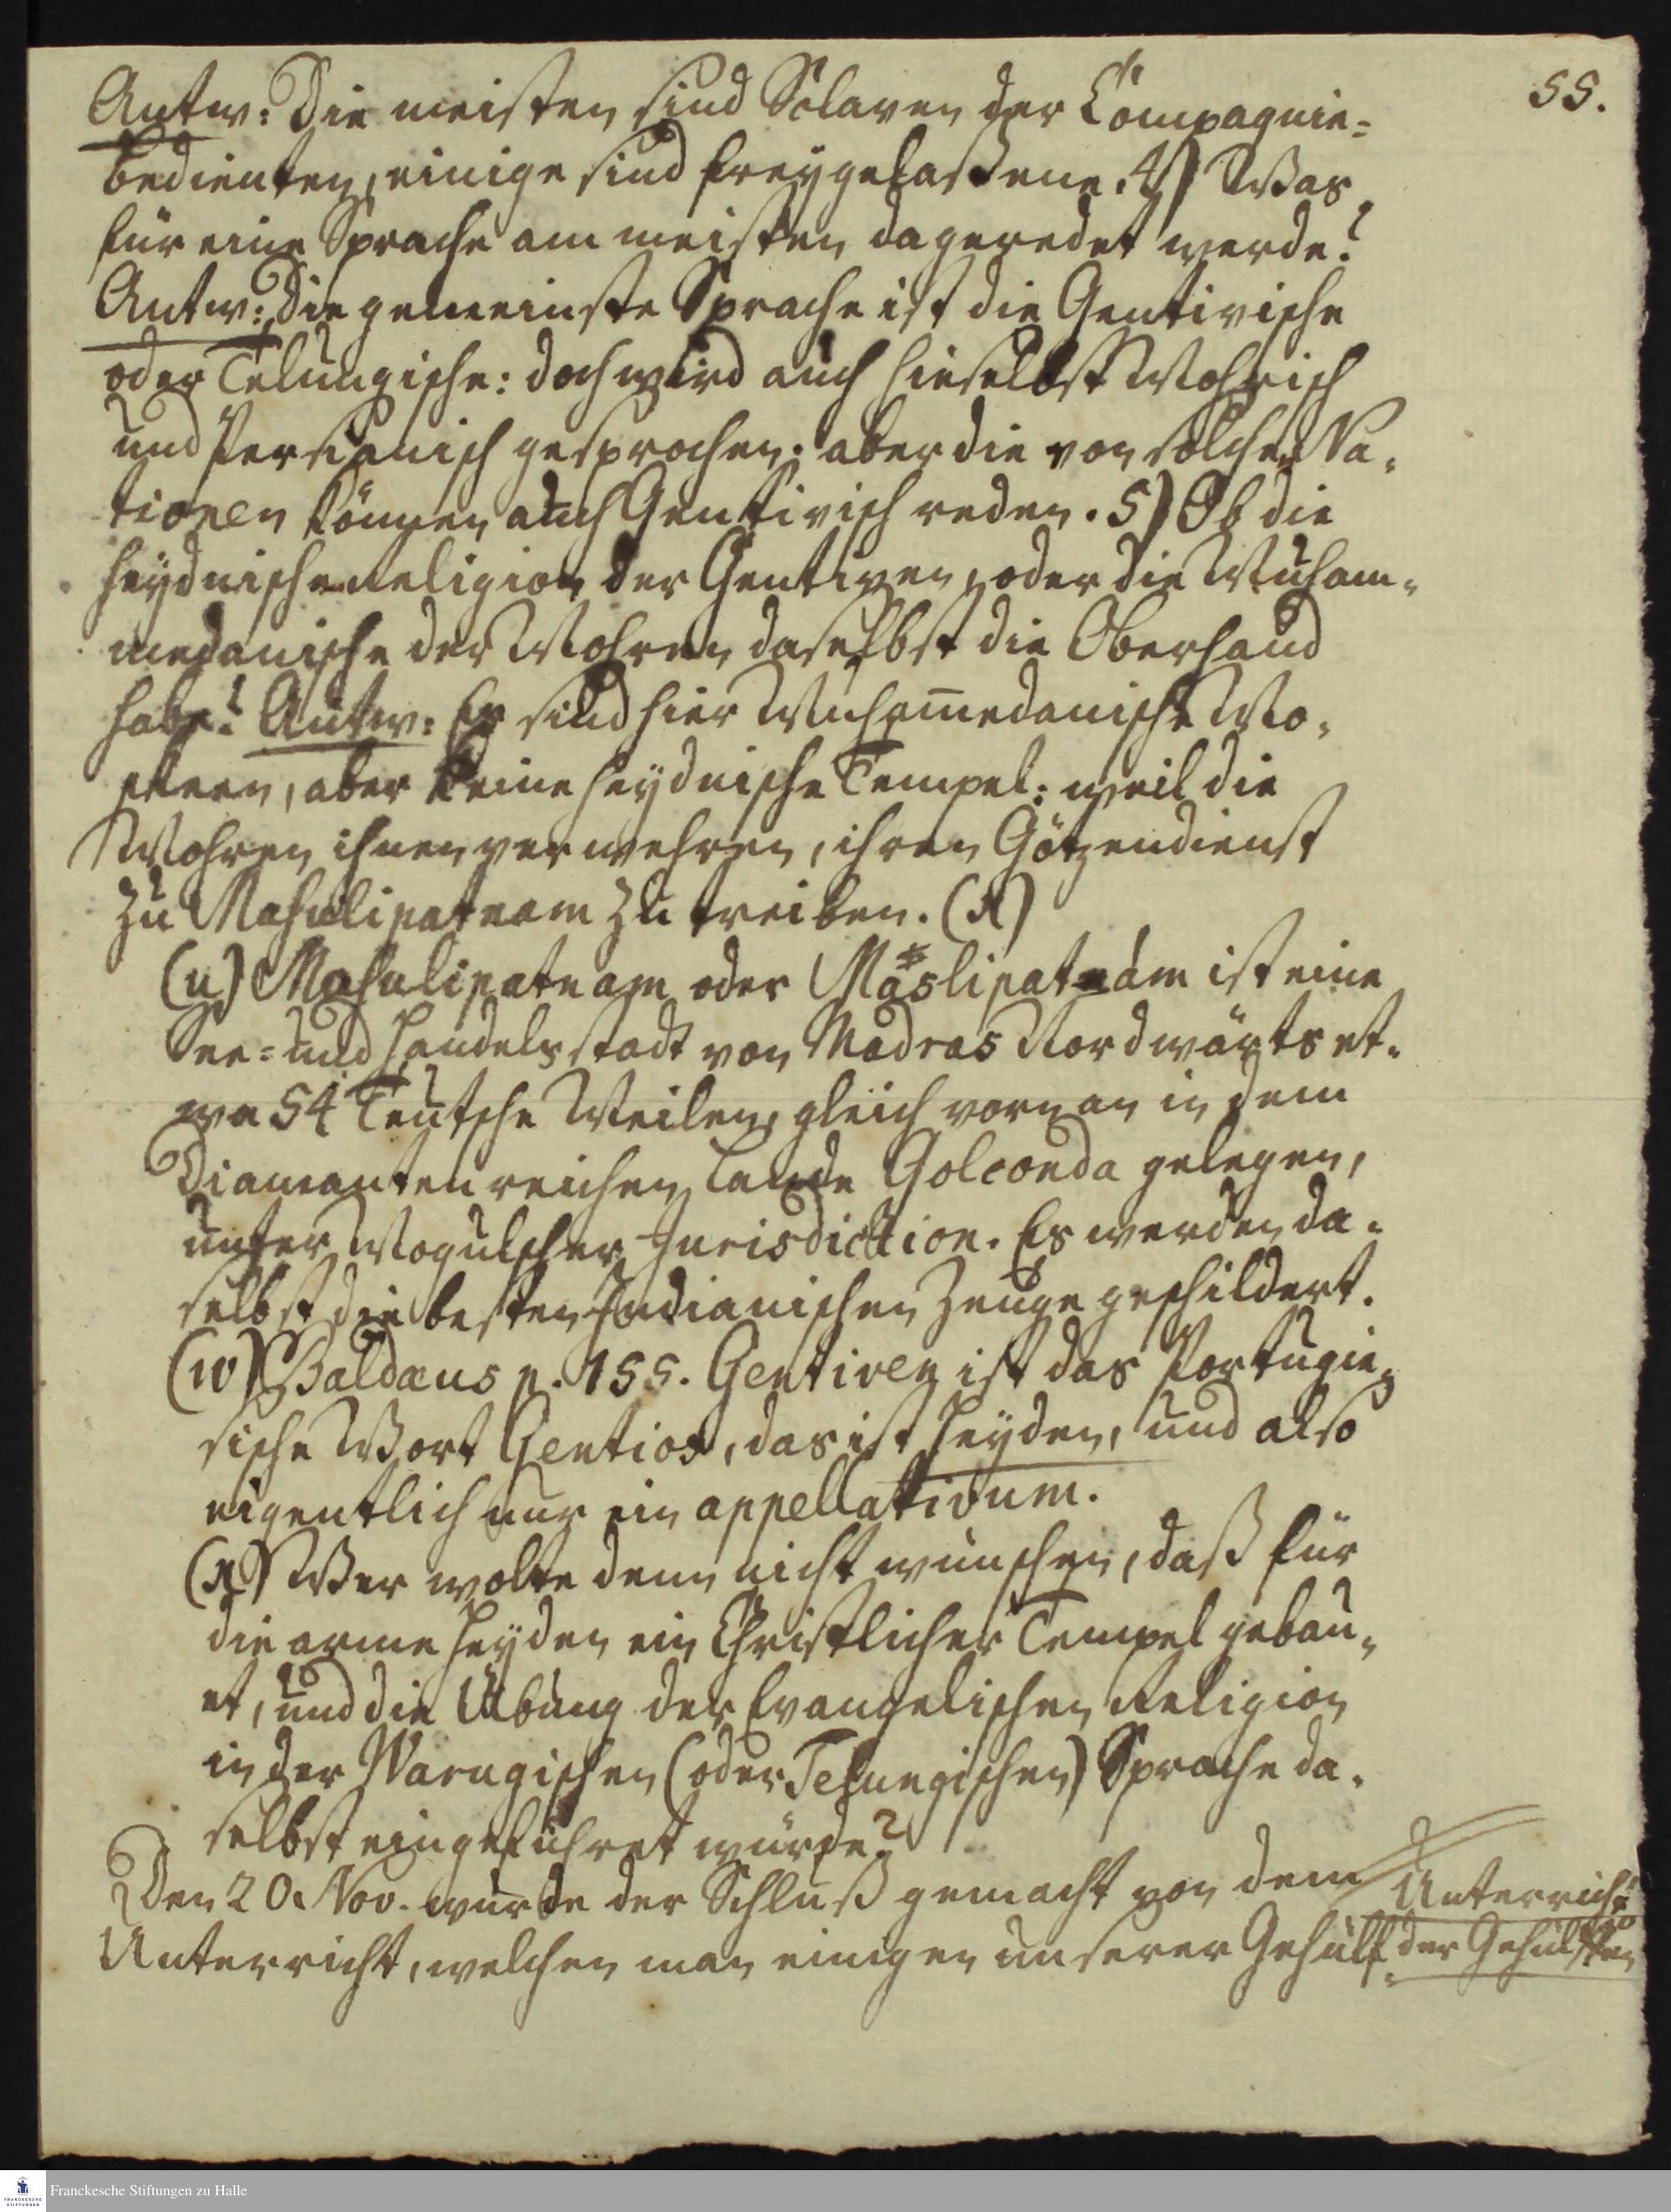 55.
Antw: Die meisten sind Sclaven der Compagnie=
bedienten, einige sind freygelaßene. 4) Was
für eine Sprache am meisten da geredet werde?
Antw: die gemeinste Sprache ist die Gentivische
oder Telungische: doch wird auch hieselbst Mohrisch
und Persianisch gesprochen; aber die von solchen Na-
tionen können auch Gentivisch reden. 5) Ob die
heydnische Religion der Gentiven, oder die Muham-
medanische der Mohren daselbst die Oberhand
habe? Antw: Es sind hier Muham̄edanische Mo-
scheen, aber keine heydnische Tempel: weil die
Mohren ihnen verwehren, ihren Götzendienst
zu Masulipatnam zu treiben. (x)
(u) Masulipatnam oder Maslipatnám ist eine
See= und Handelsstadt von Madras Nordwärts et-
wa 54 Teutsche Meilen, gleich vornan in dem
Diamanten reichen Lande Golconda gelegen,
unter Mogulscher Jurisdiction. Es werden da-
selbst die besten Indianischen Zeuge geschildert.
(w) Baldæus p. 155. Gentiven ist das Portugie-
sische Wort Gentios, das ist Heyden, und also
eigentlich nur ein appellativum.
(x) Wer wolte denn nicht wünschen, daß für
die arme Heyden ein Christlicher Tempel gebau-
et, und die Übung der Evangelischen Religion
in der Warugischen (oder Telungischen) Sprache da-
selbst eingeführet würde?
Den 20. Nov. wurde der Schluß gemacht von dem
Unterricht, welchen man einigen unserer Gehülf-
Unterricht
der Gehülffen
Franckesche Stiftungen zu Halle